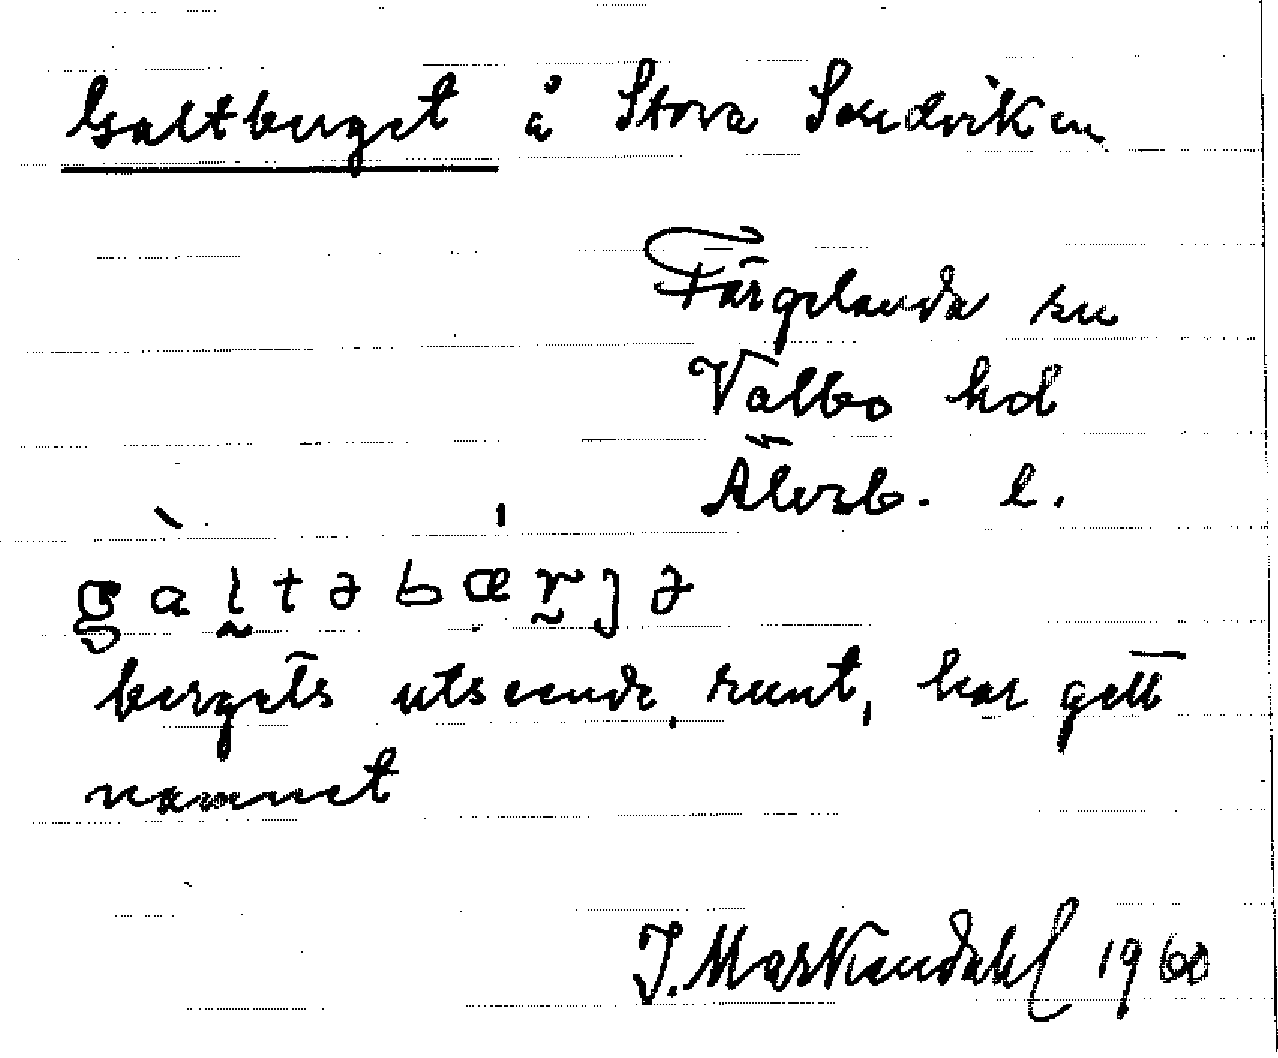 Galtberget å Stora Sandviken
Färgelanda sn
Valbo hd
Älvsb. l.
ga̍ltəbærjə
bergets utseende, runt, har gett
namnet
J. Markendahl 1960